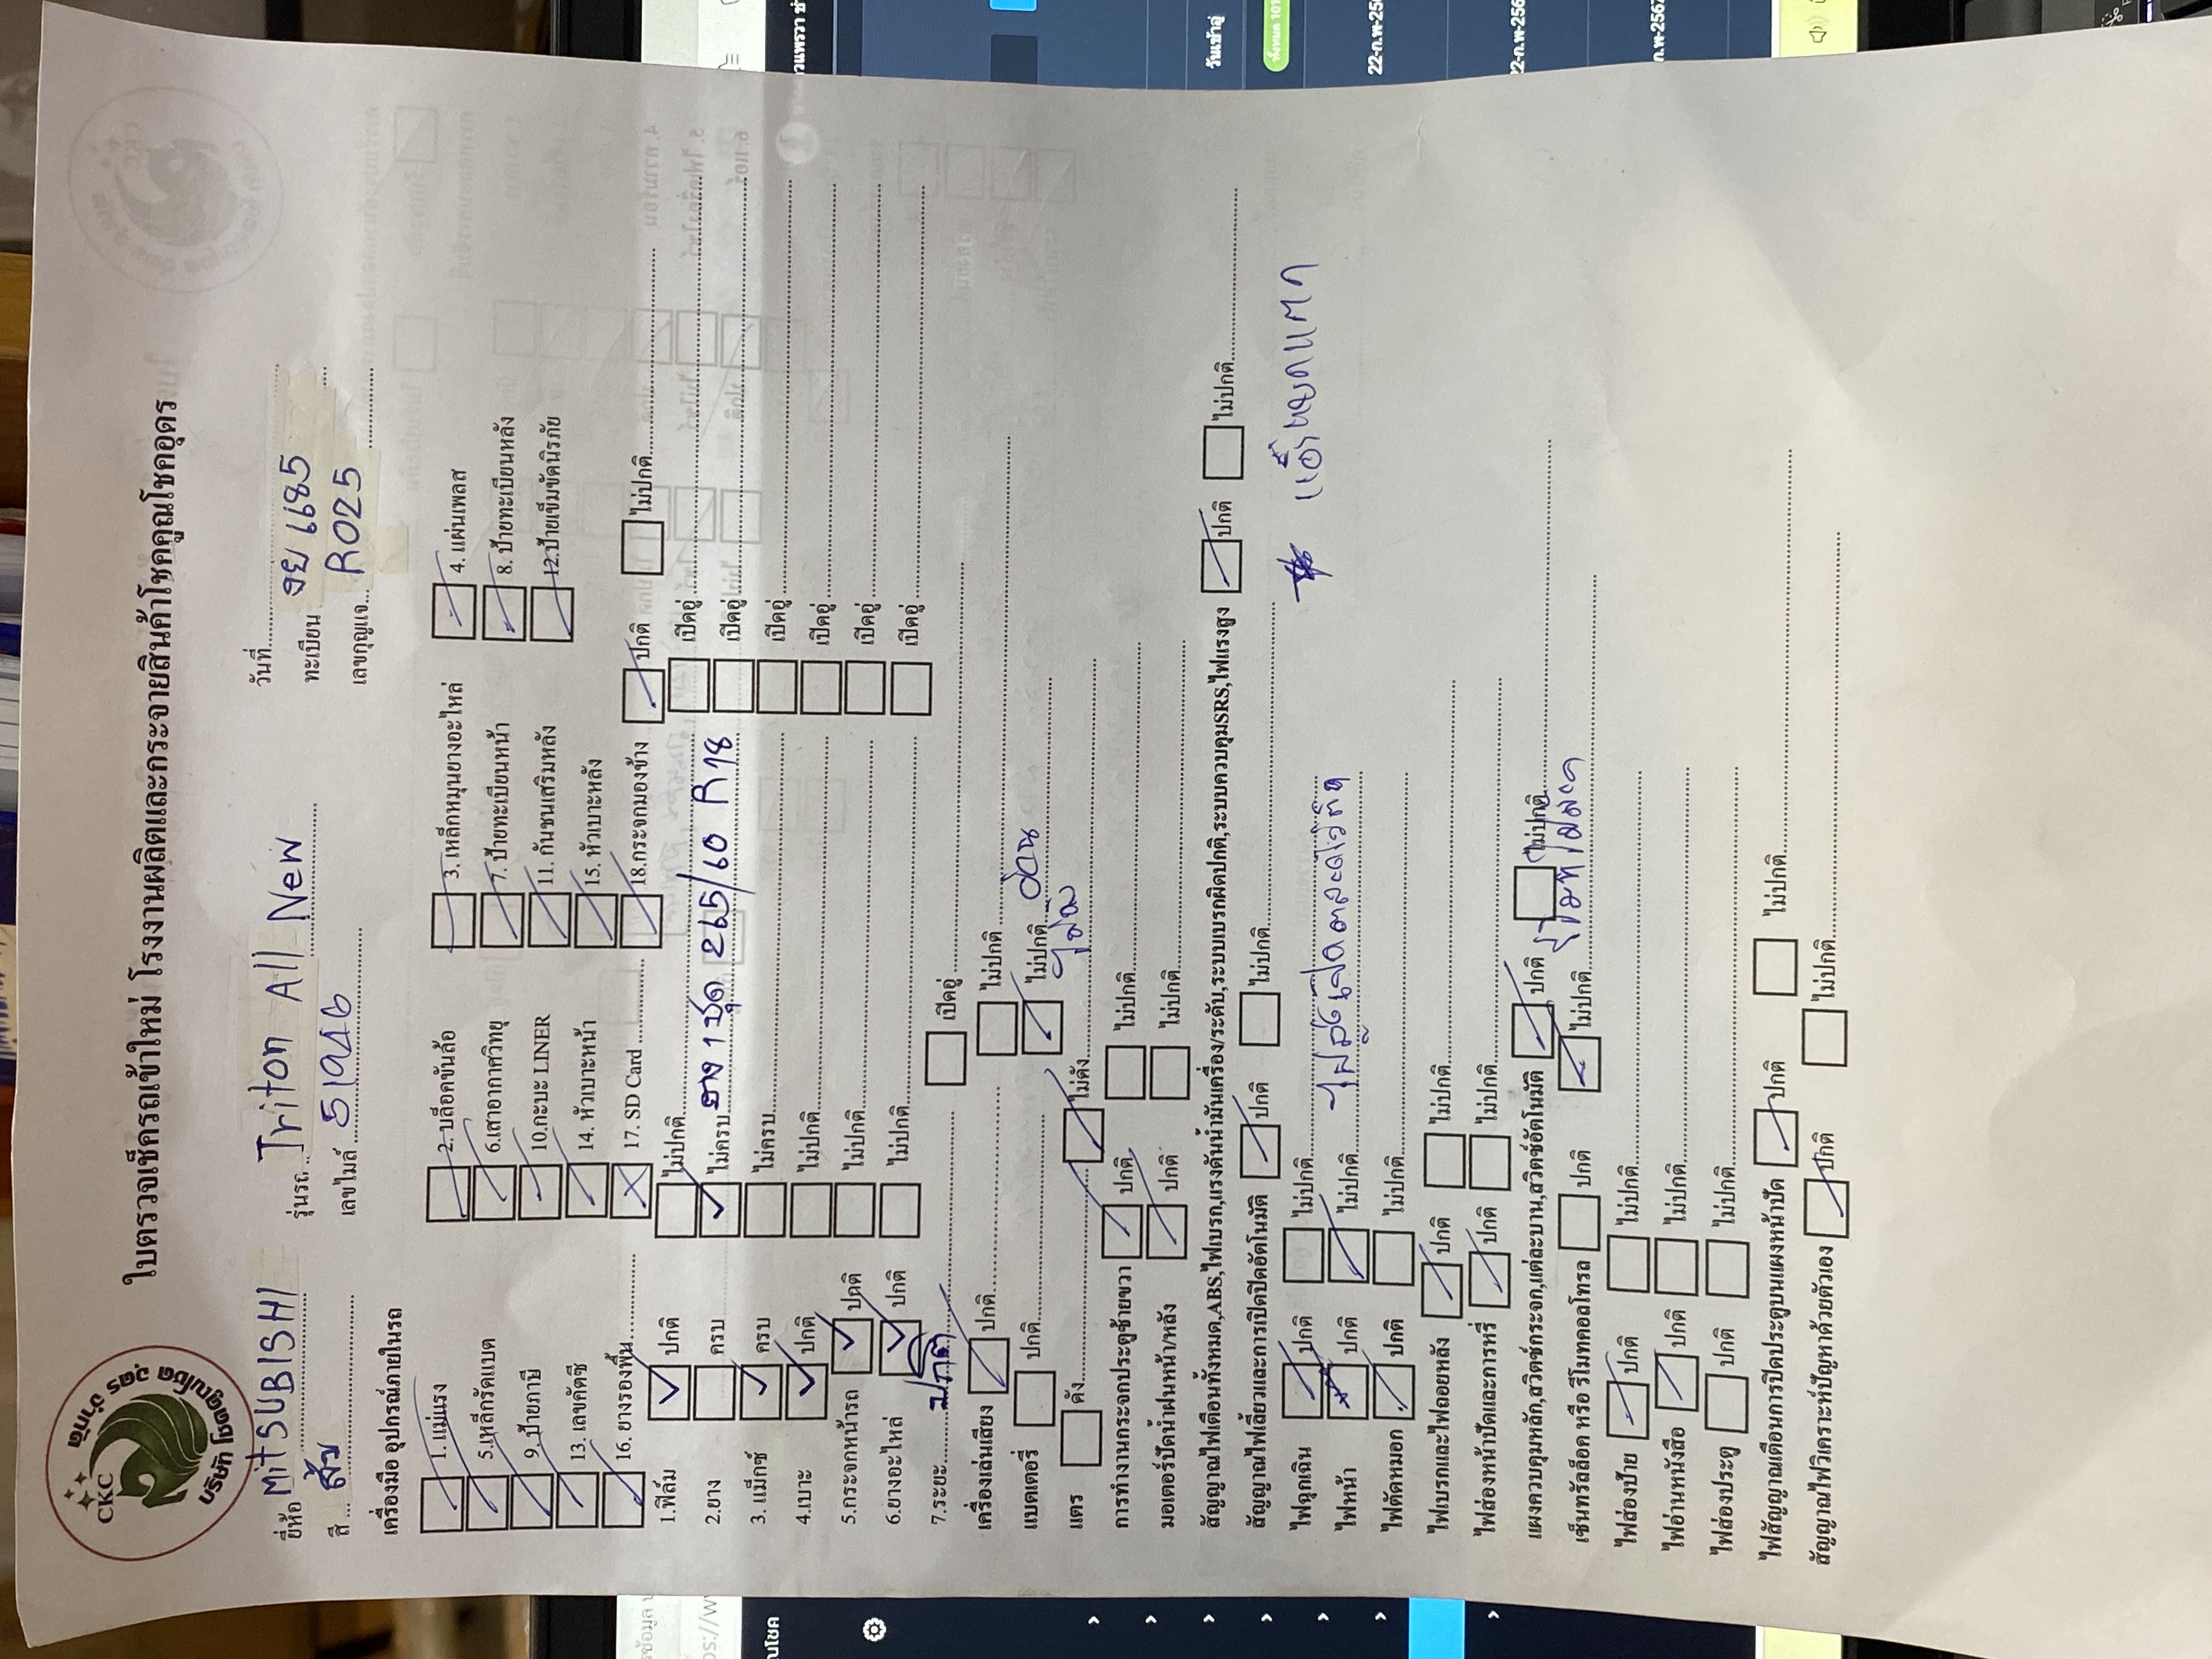 CKC
บริษัท โชคคูณโชค อุดร จำกัด
ใบตรวจเช็ครถเข้าใหม่ โรงงานผลิตและกระจายสินค้าโชคคูณโชคอุดร
ยี่ห้อ MITSUBISHI รุ่นรถ Triton All New วันที่
สี ส้ม เลขไมล์ 51946 ทะเบียน ขย 1685
เลขกุญแจ R025
เครื่องมือ อุปกรณ์ภายในรถ
1. แม่แรง 2. บล็อคขันล้อ 3. เหล็กหมุนยางอะไหล่ 4. แผ่นเพลส
5.เหล็กรัดแบต 6.เสาอากาศวิทยุ 7. ป้ายทะเบียนหน้า 8. ป้ายทะเบียนหลัง
9. ป้ายภาษี 10.กะบะ LINER 11. กันชนเสริมหลัง 12.ป้ายเข็มขัดนิรภัย
13. เลขคัตซี 14. หัวเบาะหน้า 15. หัวเบาะหลัง
16. ยางรองพื้น 17. SD Card 18.กระจกมองข้าง ปกติ ไม่ปกติ
1.ฟิล์ม ปกติ ไม่ปกติ เปิดอู่
2.ยาง ครบ ไม่ครบ ยาง 1 ชุด 265/60 R18 เปิดอู่
3. แม็กซ์ ครบ ไม่ครบ เปิดอู่
4.เบาะ ปกติ ไม่ปกติ เปิดอู่
5.กระจกหน้ารถ ปกติ ไม่ปกติ เปิดอู่
6.ยางอะไหล่ ปกติ ไม่ปกติ เปิดอู่
7.ระยะ ปกติ เปิดอู่
เครื่องเล่นเสียง ปกติ ไม่ปกติ
แบตเตอรี่ ปกติ ไม่ปกติ
แตร ดัง ไม่ดัง
การทำงานกระจกประตูซ้ายขวา ปกติ ไม่ปกติ
มอเตอร์ปัดน้ำฝนหน้า/หลัง ปกติ ไม่ปกติ
สัญญาณไฟเตือนทั้งหมด,ABS,ไฟเบรก,แรงดันน้ำมันเครื่อง/ระดับ,ระบบเบรกผิดปกติ,ระบบควบคุมSRS,ไฟแรงสูง ปกติ ไม่ปกติ
สัญญาณไฟเลี้ยวและการเปิดปิดอัตโนมัติ ปกติ ไม่ปกติ
ไฟฉุกเฉิน ปกติ ไม่ปกติ
ไฟหน้า ปกติ ไม่ปกติ
ไฟตัดหมอก ปกติ ไม่ปกติ
ไฟเบรกและไฟถอยหลัง ปกติ ไม่ปกติ
ไฟส่องหน้าปัดและการหรี่ ปกติ ไม่ปกติ
แผงควบคุมหลัก,สวิตช์กระจก,แต่ละบาน,สวิตช์อัตโนมัติ ปกติ ไม่ปกติ
เซ็นทรัลล็อค หรือ รีโมทคอลโทรล ปกติ ไม่ปกติ
ไฟส่องป้าย ปกติ ไม่ปกติ
ไฟอ่านหนังสือ ปกติ ไม่ปกติ
ไฟส่องประตู ปกติ ไม่ปกติ
ไฟสัญญาณเตือนการปิดประตูบนแผงหน้าปัด ปกติ ไม่ปกติ
สัญญาณไฟวิเคราะห์ปัญหาด้วยตัวเอง ปกติ ไม่ปกติ
วันเข้าอู่
22-ก.พ-256